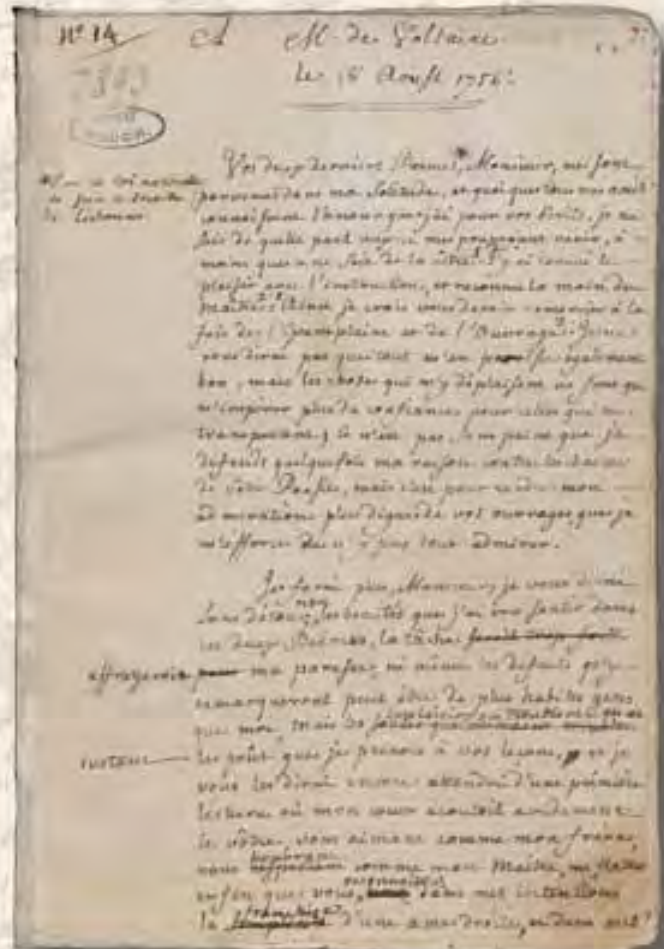 Nº 14 A M. de Voltaire
le 18 Aoust 1756.
Vos deux derniers Poëmes, Monsieur, me sont
parvenus dans ma solitude, et quoique tous mes amis
connoissent l'amour que j'ai pour vos écrits, je ne
sais de quelle part me pourroient venir, à
moins que ce ne soit de la vôtre. J'y ai trouvé le
plaisir avec l'instruction, et reconnu la main du
maître. Ainsi je crois vous devoir remercier à la
fois de l'Exemplaire et de l'Ouvrage. Je ne
vous dirai pas que tout m'en également
bon, mais les choses qui m'y déplaisent ne font que
m'inspirer plus de confiance pour celles qui me
transportent; ce n'est pas sans peine que je
défends quelquefois ma raison contre les charmes
de vôtre Poësie, mais c'est pour rendre mon
admiration plus digne de vos ouvrages, que je
m'efforce de n'y pas tout admirer.
Je ferai plus, Monsieur, je vous dirai
sans détour, non les beautés que j'ai cru sentir dans
ces deux Poëmes, la tâche
effrayeroit ma paresse, ni même les défauts qu'y
remarqueront peut être de plus habiles gens
que moi, mais
le goût que je prenois à vos leçons, et je
vous les dirai encore attendri d'une première
lecture où mon cœur écoutoit avidement
le vôtre, vous aimant comme mon frère,
vous honorant comme mon Maître, me flattant
enfin que vous reconnoîtrez dans mes intentions
la franchise d'une ame droite, et dans mes